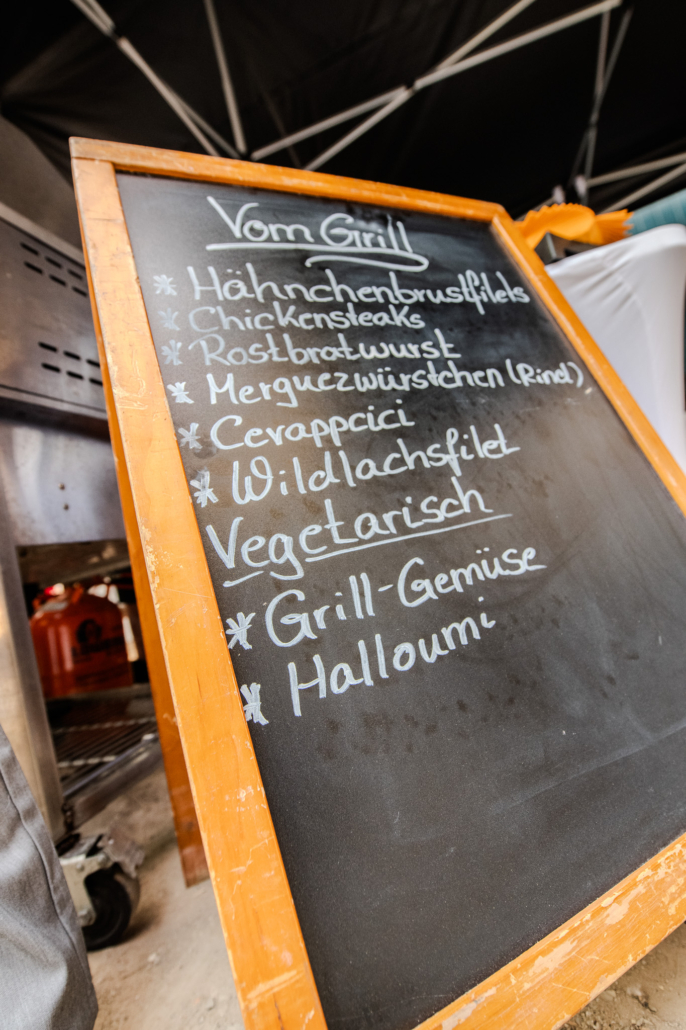 Vom Grill
* Hähnchenbrustfilets
* Chickensteaks
* Rostbratwurst
* Merguezwürstchen (Rind)
* Cevappcici
* Wildlachsfilet
Vegetarisch
* Grill-Gemüse
* Halloumi